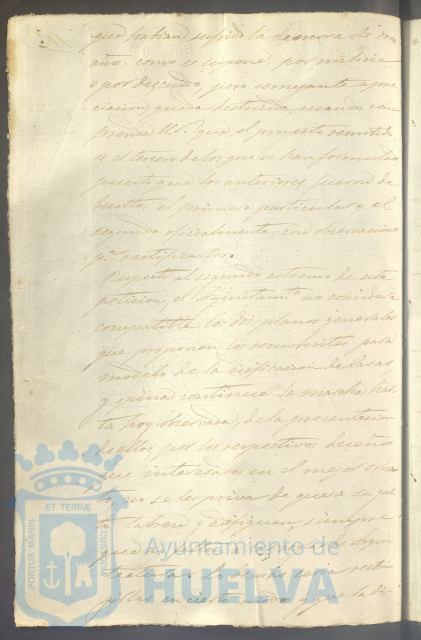 que habian sufrido la demora de un
año, como se supone, por malicia
o por descuido, pero semejante apre
ciacion queda destruida, cuando com
prenda U.S. que el proyecto remitido
es el tercero de los que se han formulado
puesto que los anteriores fueron de
bueltos, el primero particular y el
segundo oficialmente, con observaciones
pª rectificarlos.
Respecto al segundo estremo de esta
peticion, el Ayuntamto no considera
compatible los dos planos generales
que proponen los recurrentes para
modelo de la edificacion de casas
y opina continue la marcha has
ta hoy observada, de la presentacion
de ellos, por los respectivos dueños
que interesados en el mejor
se les priva de que a su
labren y edifiquen siempre
que
en cierto modo
PORTUS MARIS
ET TERRÆ
CUSTODIA
Ayuntamiento de
HUELVA